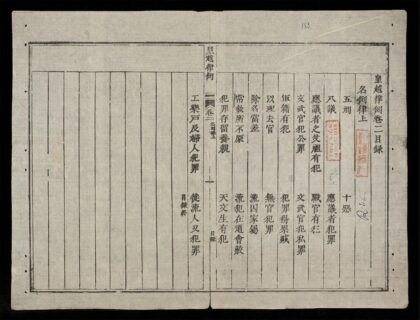 皇越律例卷二目錄
名例律上
五刑 十惡
八議 應議者犯罪
應議者之父祖有犯 職官有犯
文武官犯公罪 文武官犯私罪
軍籍有犯 犯罪得累減
以理去官 無官犯罪
除名當差 流囚家屬
常赦所不原 流犯在道會赦
犯罪存留養親 天文生有犯
皇越律例 卷二 目錄
工樂戶及婦人犯罪 徒流人又犯罪
目錄終